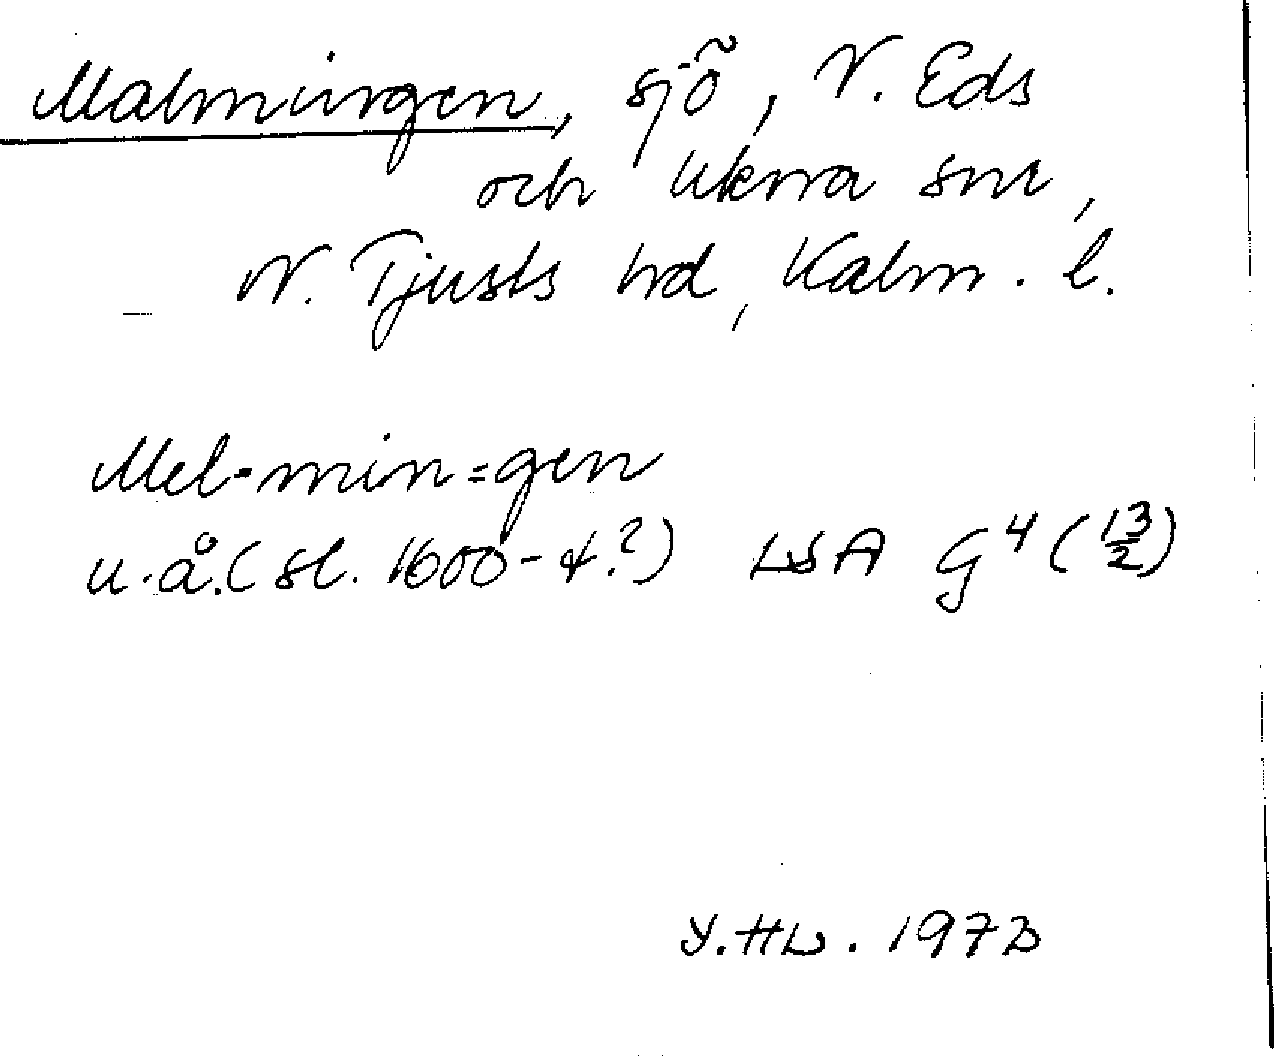 Malmingen, sjö, V. Eds
och Ukna snr,
N. Tjusts hd, Kalm. l.
Mel-min=gen
u.å. (sl. 1600-t.?) LSA G4 (13/2)
Y.HL. 1973